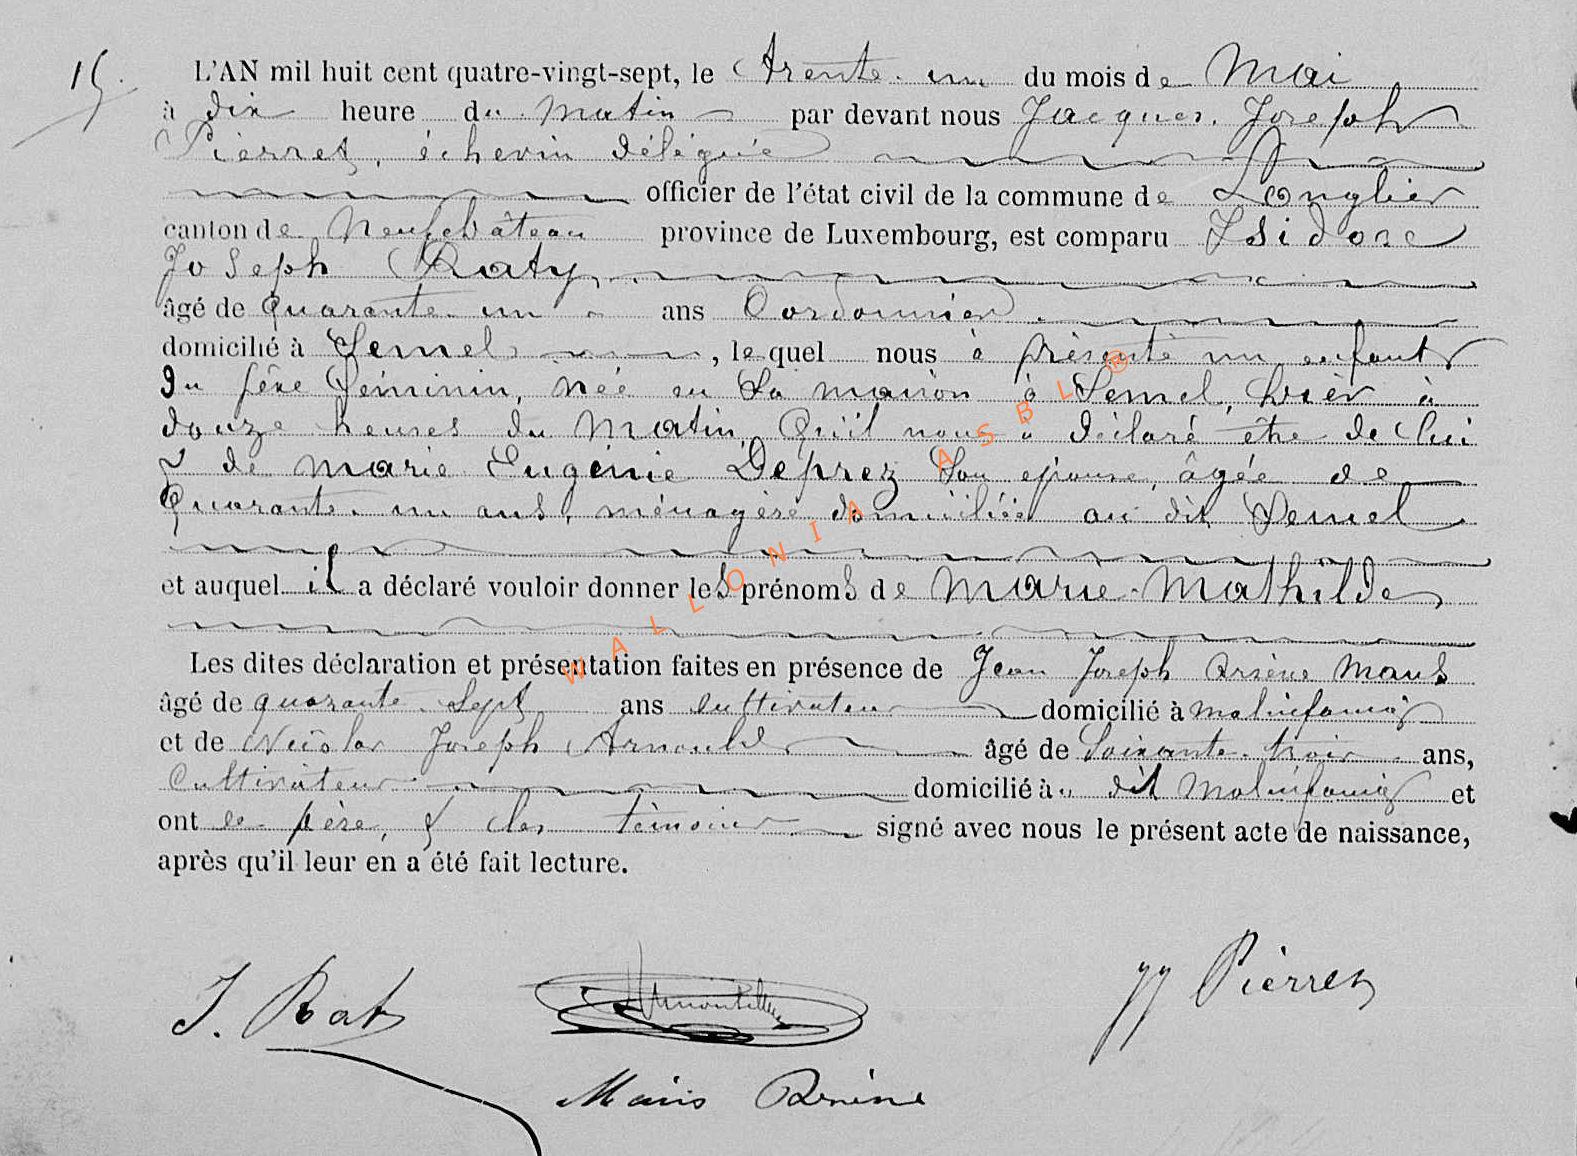 15
L'AN mil huit cent quatre-vingt-sept, le trente-un du mois de Mai
à dix heure du matin par devant nous Jacques Joseph
Pierret, échevin délégué
officier de l'état civil de la commune de Longlier
canton de Neufchâteau province de Luxembourg, est comparu Isidore
Joseph Raty
âgé de quarante-un ans Cordonnier
domicilié à Semel, lequel nous a présenté un enfant
du sèxe féminin, née en sa maison à Semel, hier à
douze heures du matin, Qu'il nous a déclaré être de lui
& de marie Eugénie Deprez son épouse, âgée de
Quarante-un ans, ménagère domiciliée au dit Semel
et auquel il a déclaré vouloir donner les prénoms de Marie-Mathilde
Les dites déclaration et présentation faites en présence de Jean Joseph Arsène Maus
âgé de quarante-sept ans cultivateur domicilié à molinfaing
et de Nicolas Joseph Arnould âgé de Soixante-trois ans,
Cultivateur domicilié au dit Molinfaing et
ont le père, & les témoins signé avec nous le présent acte de naissance,
après qu'il leur en a été fait lecture.
J. Raty
JJ Pierret
Maus Arsène
WALLONIA ASBL ®